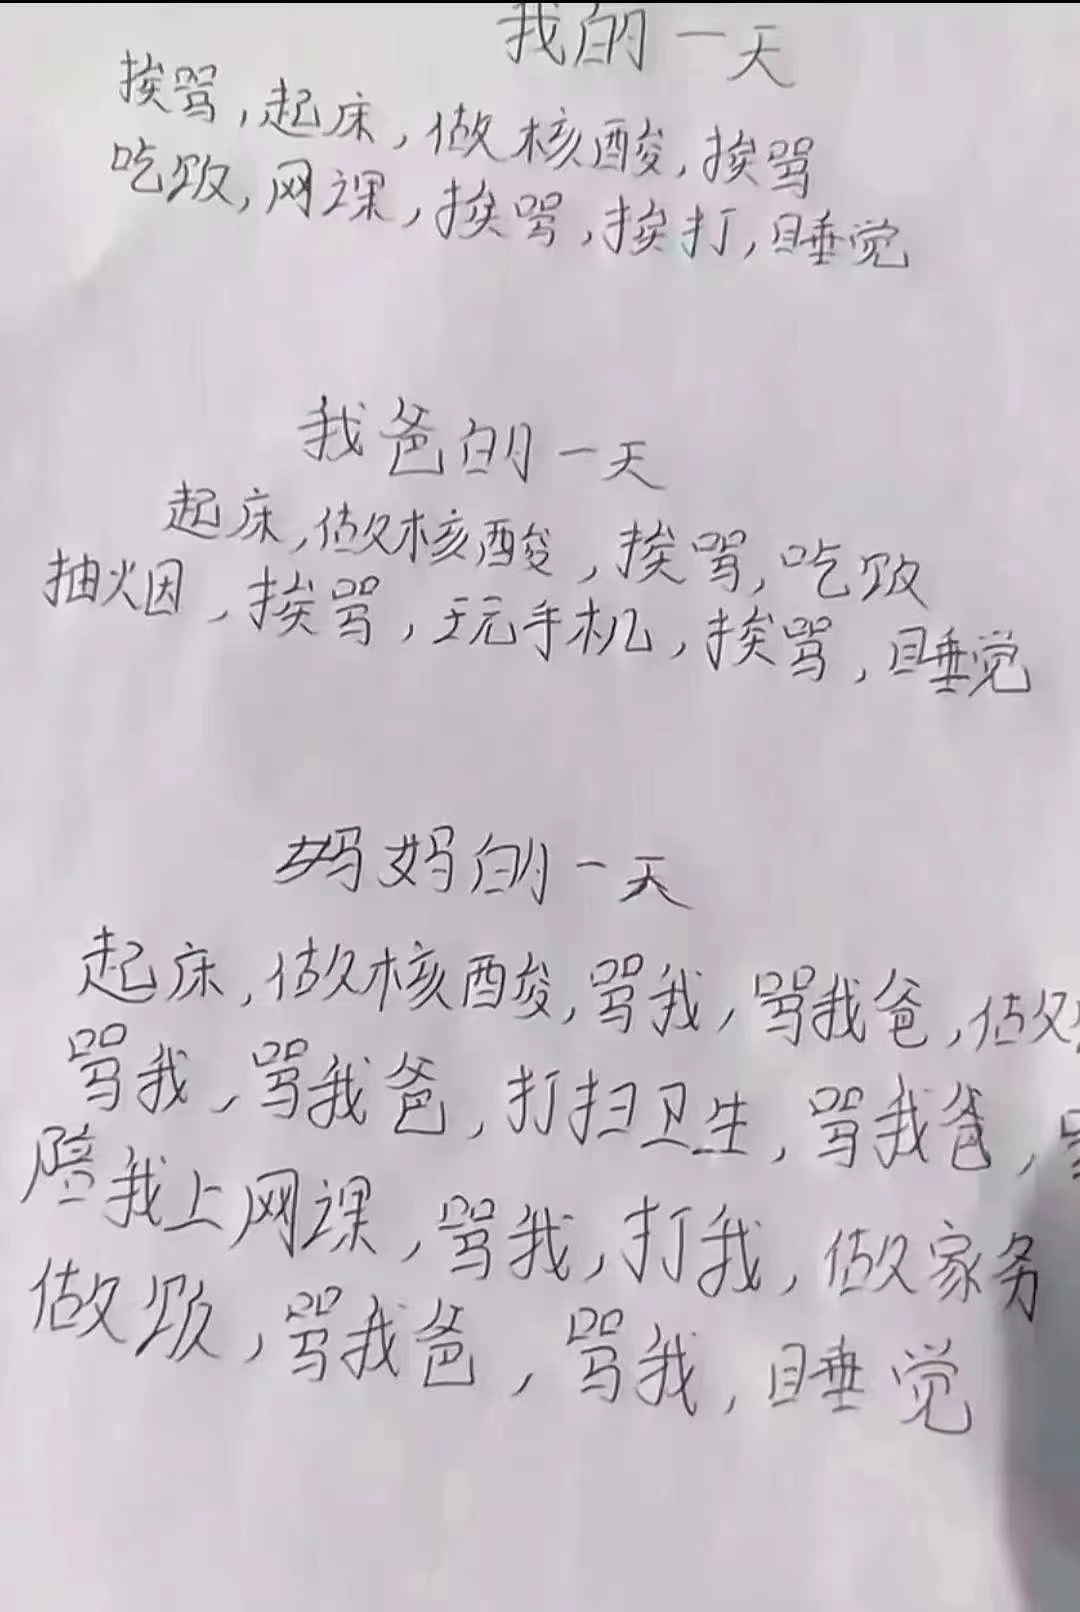 我的一天
挨骂,起床,做核酸,挨骂
吃饭,网课,挨骂,挨打,睡觉
我爸的一天
起床,做核酸,挨骂,吃饭
抽烟,挨骂,玩手机,挨骂,睡觉
妈妈的一天
起床,做核酸,骂我,骂我爸,做
骂我,骂我爸,打扫卫生,骂我爸,
陪我上网课,骂我,打我,做家务
做饭,骂我爸,骂我,睡觉